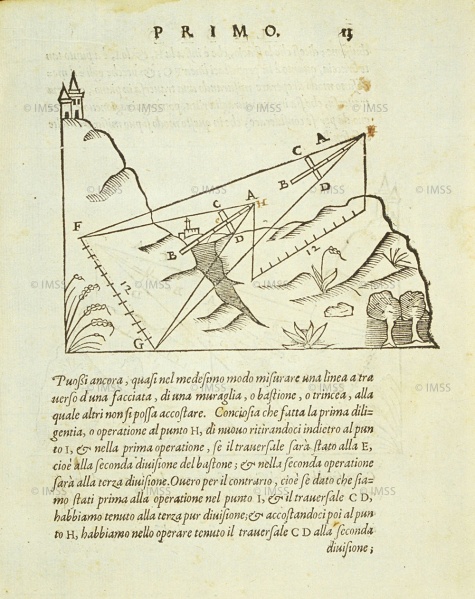 PRIMO. 13
© IMSS © IMSS © IMSS © IMSS
C A
B D
© IMSS © IMSS © IMSS © IMSS
F C A H
B D
12
13
© IMSS © IMSS © IMSS © IMSS
G
Puossi ancora, quasi nel medesimo modo misurare una linea a tra
uerso d'una facciata, di una muraglia, o bastione, o trincea, alla
quale altri non si possa accostare. Conciosia che fatta la prima dili-
gentia, o operatione al punto H, di nuouo ritirandoci indietro al pun
to I, & nella prima operatione, se il trauersale sarà stato alla E,
cioè alla seconda diuisione del bastone; & nella seconda operatione
sarà alla terza diuisione. Ouero per il contrario, cioè se dato che sia-
mo stati prima alla operatione nel punto I, & il trauersale C D,
habbiamo tenuto alla terza pur diuisione; & accostandoci poi al pun
to H, habbiamo nello operare tenuto il trauersale C D alla seconda
diuisione;